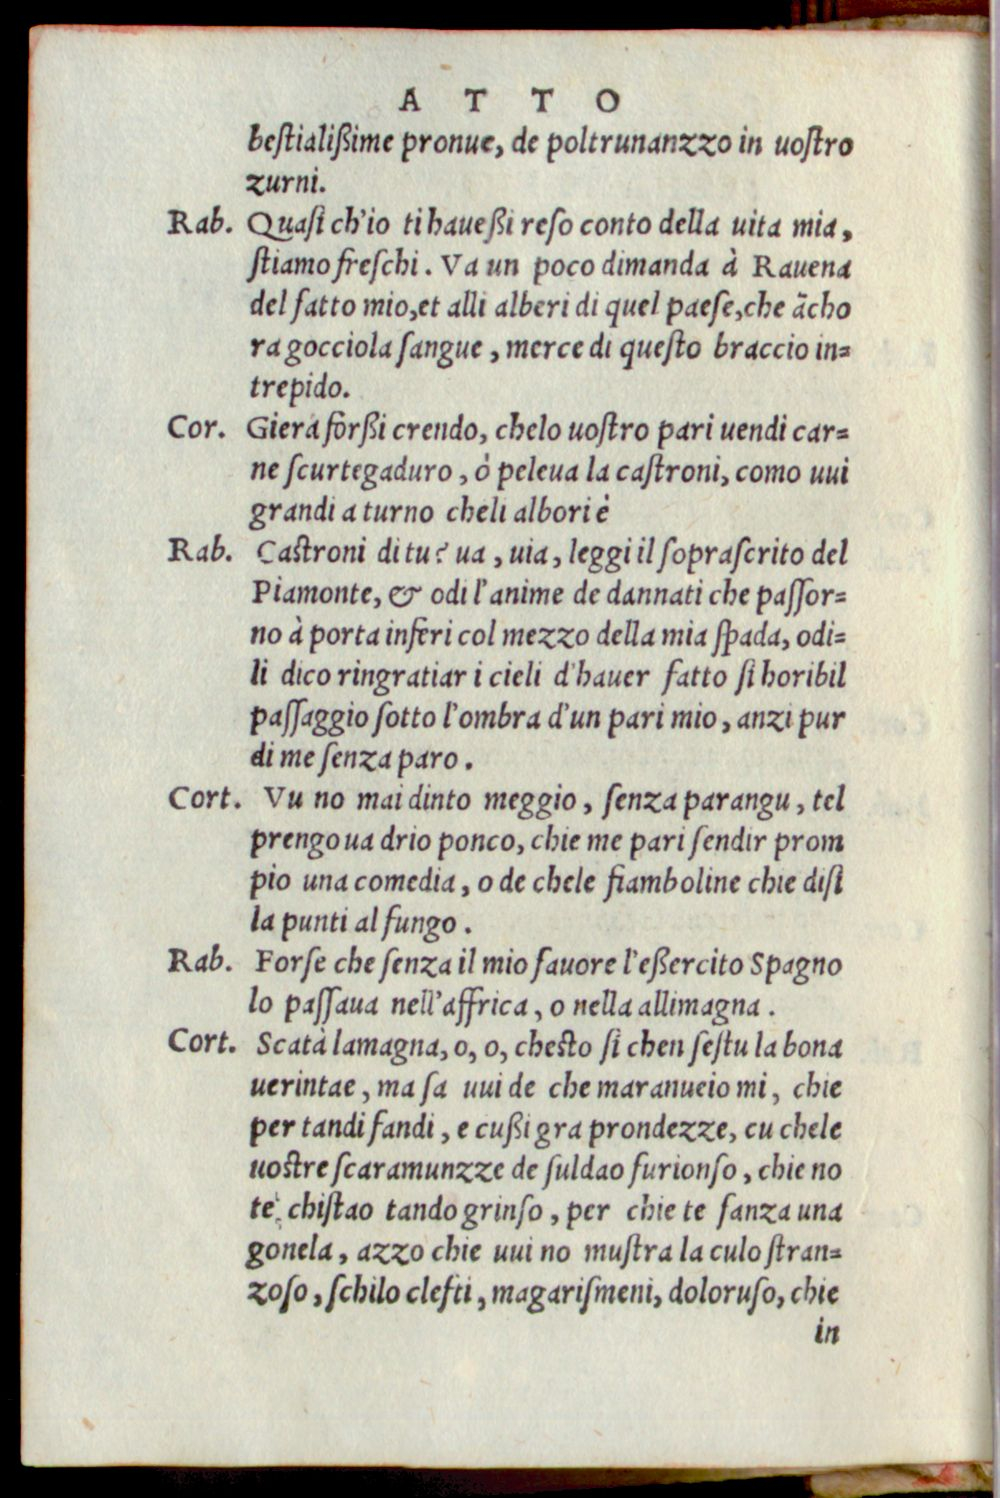 A T T O
bestialißime pronue, de poltrunanzzo in uostro
zurni.
Rab. Quasi ch'io ti haueßi reso conto della uita mia,
stiamo freschi. Va un poco dimanda à Rauena
del fatto mio,et alli alberi di quel paese,che ãcho
ra gocciola sangue, merce di questo braccio in=
trepido.
Cor. Giera forßi crendo, chelo uostro pari uendi car=
ne scurtegaduro, ò peleua la castroni, como uui
grandi a turno cheli albori è
Rab. Castroni di tu? ua, uia, leggi il soprascrito del
Piamonte, & odi l'anime de dannati che passor=
no à porta inferi col mezzo della mia spada, odi=
li dico ringratiar i cieli d'hauer fatto si horibil
passaggio sotto l'ombra d'un pari mio, anzi pur
di me senza paro.
Cort. Vu no mai dinto meggio, senza parangu, tel
prengo ua drio ponco, chie me pari sendir prom
pio una comedia, o de chele fiamboline chie disi
la punti al fungo.
Rab. Forse che senza il mio fauore l'eßercito Spagno
lo passaua nell'affrica, o nella allimagna.
Cort. Scatà lamagna, o, o, chesto si chen sestu la bona
uerintae, ma sa uui de che maranueio mi, chie
per tandi fandi, e cußi gra prondezze, cu chele
uostre scaramunzze de suldao furionso, chie no
te chistao tando grinso, per chie te sanza una
gonela, azzo chie uui no mustra la culo stran=
zoso, schilo clefti, magarismeni, doloruso, chie
in